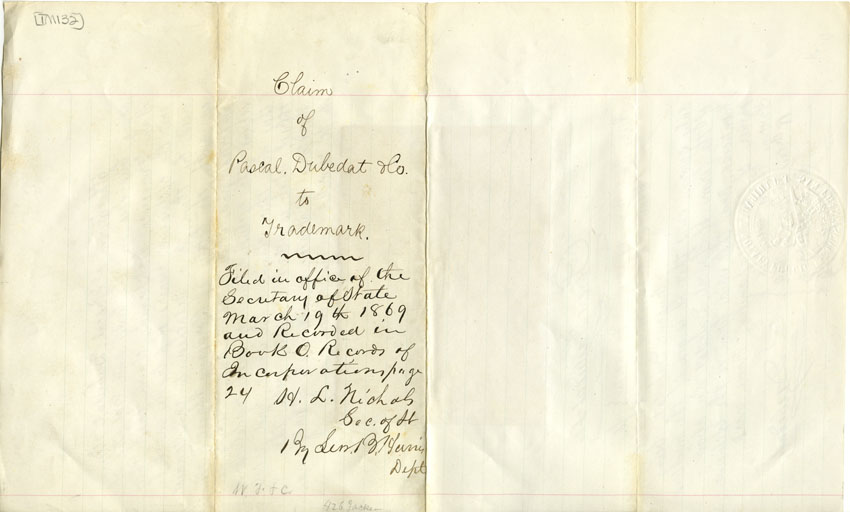 TM132
Claim
of
Pascal, Dubedat & Co.
to
Trademark.
Filed in office of the
Secretary of State
March 19th 1869
and Recorded in
Book O. Records of
Incorporations page
24 H. L. Nichols
Sec. of St
By Lew. B. Harris
Dept